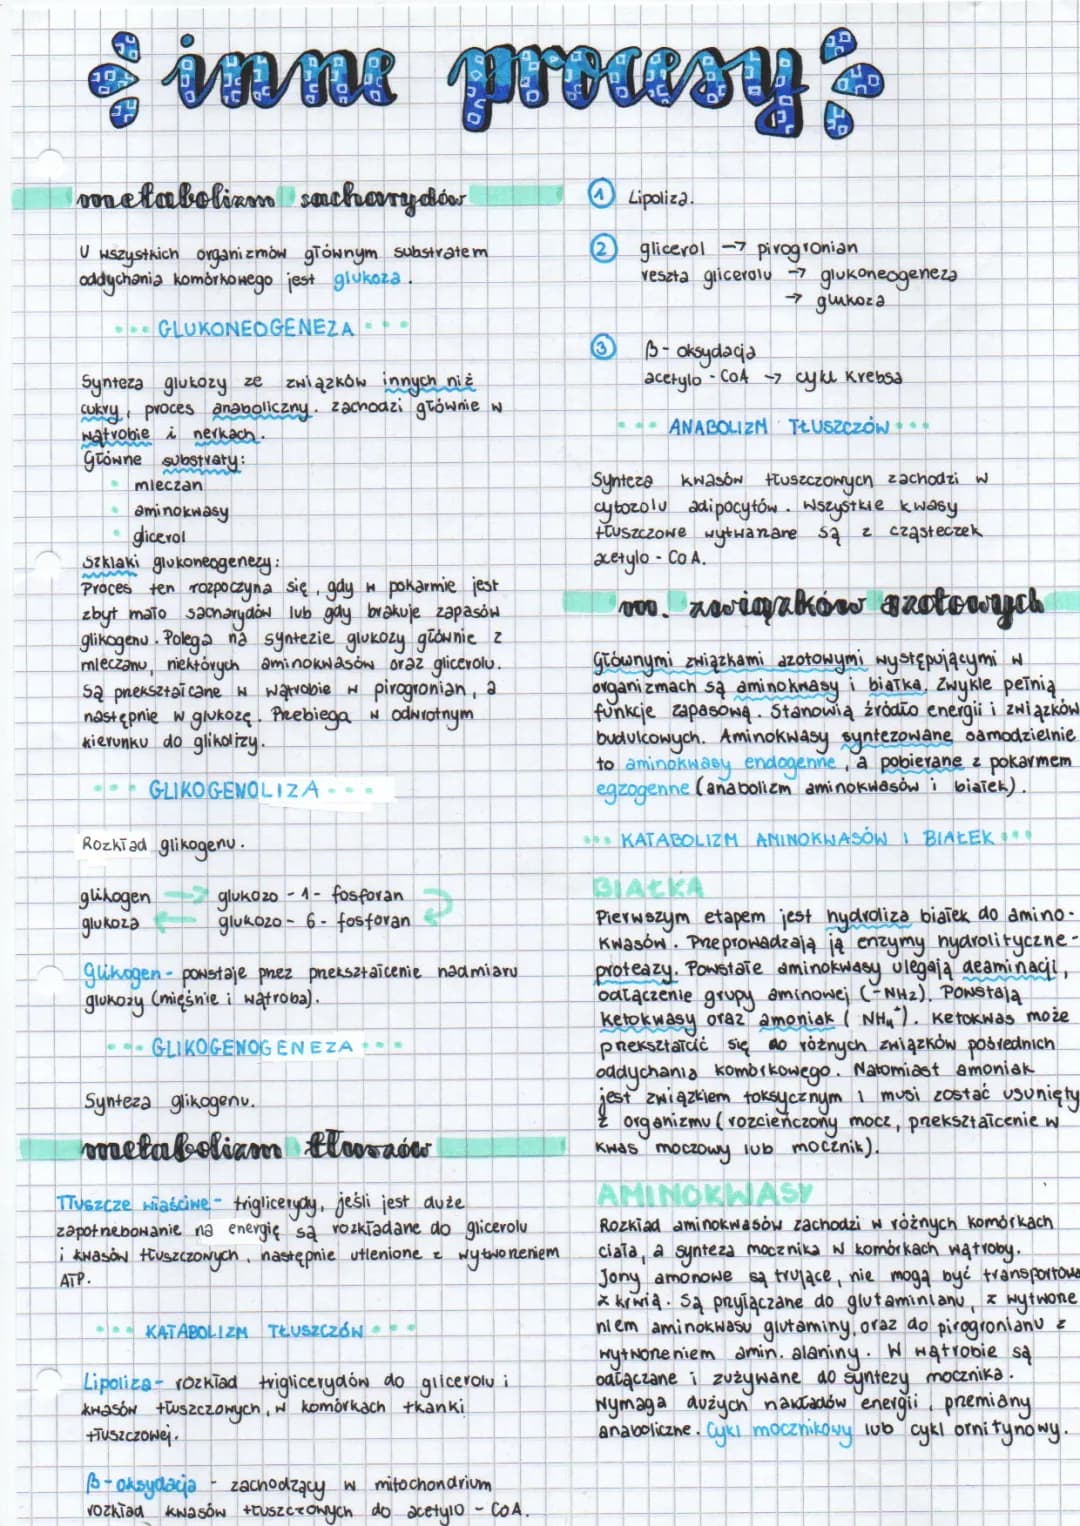 inne procesy
metabolizm sacharydów
U wszystkich organizmów głównym substratem
oddychania komórkowego jest glukoza.
GLUKONEOGENEZA
Synteza glukozy ze związków innych niż
cukry, proces anaboliczny. zachodzi głównie w
wątrobie i nerkach.
Główne substraty:
mleczan
aminokwasy
glicerol
Szklaki glukoneogenezy:
Proces ten rozpoczyna się, gdy w pokarmie jest
zbyt mało sacharydów lub gdy brakuje zapasów
glikogenu. Polega na syntezie glukozy głównie z
mleczanu, niektórych aminokwasów oraz glicerolu.
Są przekształcane w wątrobie w pirogronian, a
następnie w glukozę. Przebiega w odwrotnym
kierunku do glikolizy.
GLIKOGENOLIZA
Rozkład glikogenu.
glikogen → glukozo - 1 - fosforan
glukoza ← glukozo - 6 - fosforan
Glikogen - powstaje przez przekształcenie nadmiaru
glukozy (mięśnie i wątroba).
GLIKOGENOGENEZA
Synteza glikogenu.
metabolizm tłuszzów
Tłuszcze właściwe - triglicerydy, jeśli jest duże
zapotrzebowanie na energię są rozkładane do glicerolu
i kwasów tłuszczowych, następnie utlenione z wytworzeniem
ATP.
KATABOLIZM TŁUSZCZÓW
Lipoliza - rozkład triglicerydów do glicerolu i
kwasów tłuszczowych, w komórkach tkanki
tłuszczowej.
β - oksydacja - zachodzący w mitochondrium
rozkład kwasów tłuszczowych do acetylo - CoA.
1 Lipoliza.
2 glicerol → pirogronian
reszta glicerolu → glukoneogeneza
→ glukoza
3 β - oksydacja
acetylo - CoA → cykl Krebsa
ANABOLIZM TŁUSZCZÓW
Synteza kwasów tłuszczowych zachodzi w
cytozolu adipocytów. Wszystkie kwasy
tłuszczowe wytwarzane są z cząsteczek
acetylo - CoA.
m. związków azotowych
Głównymi związkami azotowymi występującymi w
organizmach są aminokwasy i białka. Zwykle pełnią
funkcje zapasową. Stanowią źródło energii i związków
budulcowych. Aminokwasy syntezowane samodzielnie
to aminokwasy endogenne, a pobierane z pokarmem
egzogenne (anabolizm aminokwasów i białek).
KATABOLIZM AMINOKWASÓW I BIAŁEK
BIAŁKA
Pierwszym etapem jest hydroliza białek do amino-
kwasów. Przeprowadzają ją enzymy hydrolityczne -
proteazy. Powstałe aminokwasy ulegają deaminacji,
odłączenie grupy aminowej (-NH2). Powstają
ketokwasy oraz amoniak (NH4+). Ketokwas może
przekształcić się do różnych związków pośrednich
oddychania komórkowego. Natomiast amoniak
jest związkiem toksycznym i musi zostać usunięty
z organizmu (rozcieńczony mocz, przekształcenie w
kwas moczowy lub mocznik).
AMINOKWASY
Rozkład aminokwasów zachodzi w różnych komórkach
ciała, a synteza mocznika w komórkach wątroby.
Jony amonowe są trujące, nie mogą być transportowa
z krwią. Są przyłączane do glutaminianu, z wytworze
niem aminokwasu glutaminy, oraz do pirogronianu z
wytworzeniem amin. alaniny. W wątrobie są
odłączane i zużywane do syntezy mocznika.
Wymaga dużych nakładów energii, przemiany
anaboliczne. Cykl mocznikowy lub cykl ornitynowy.